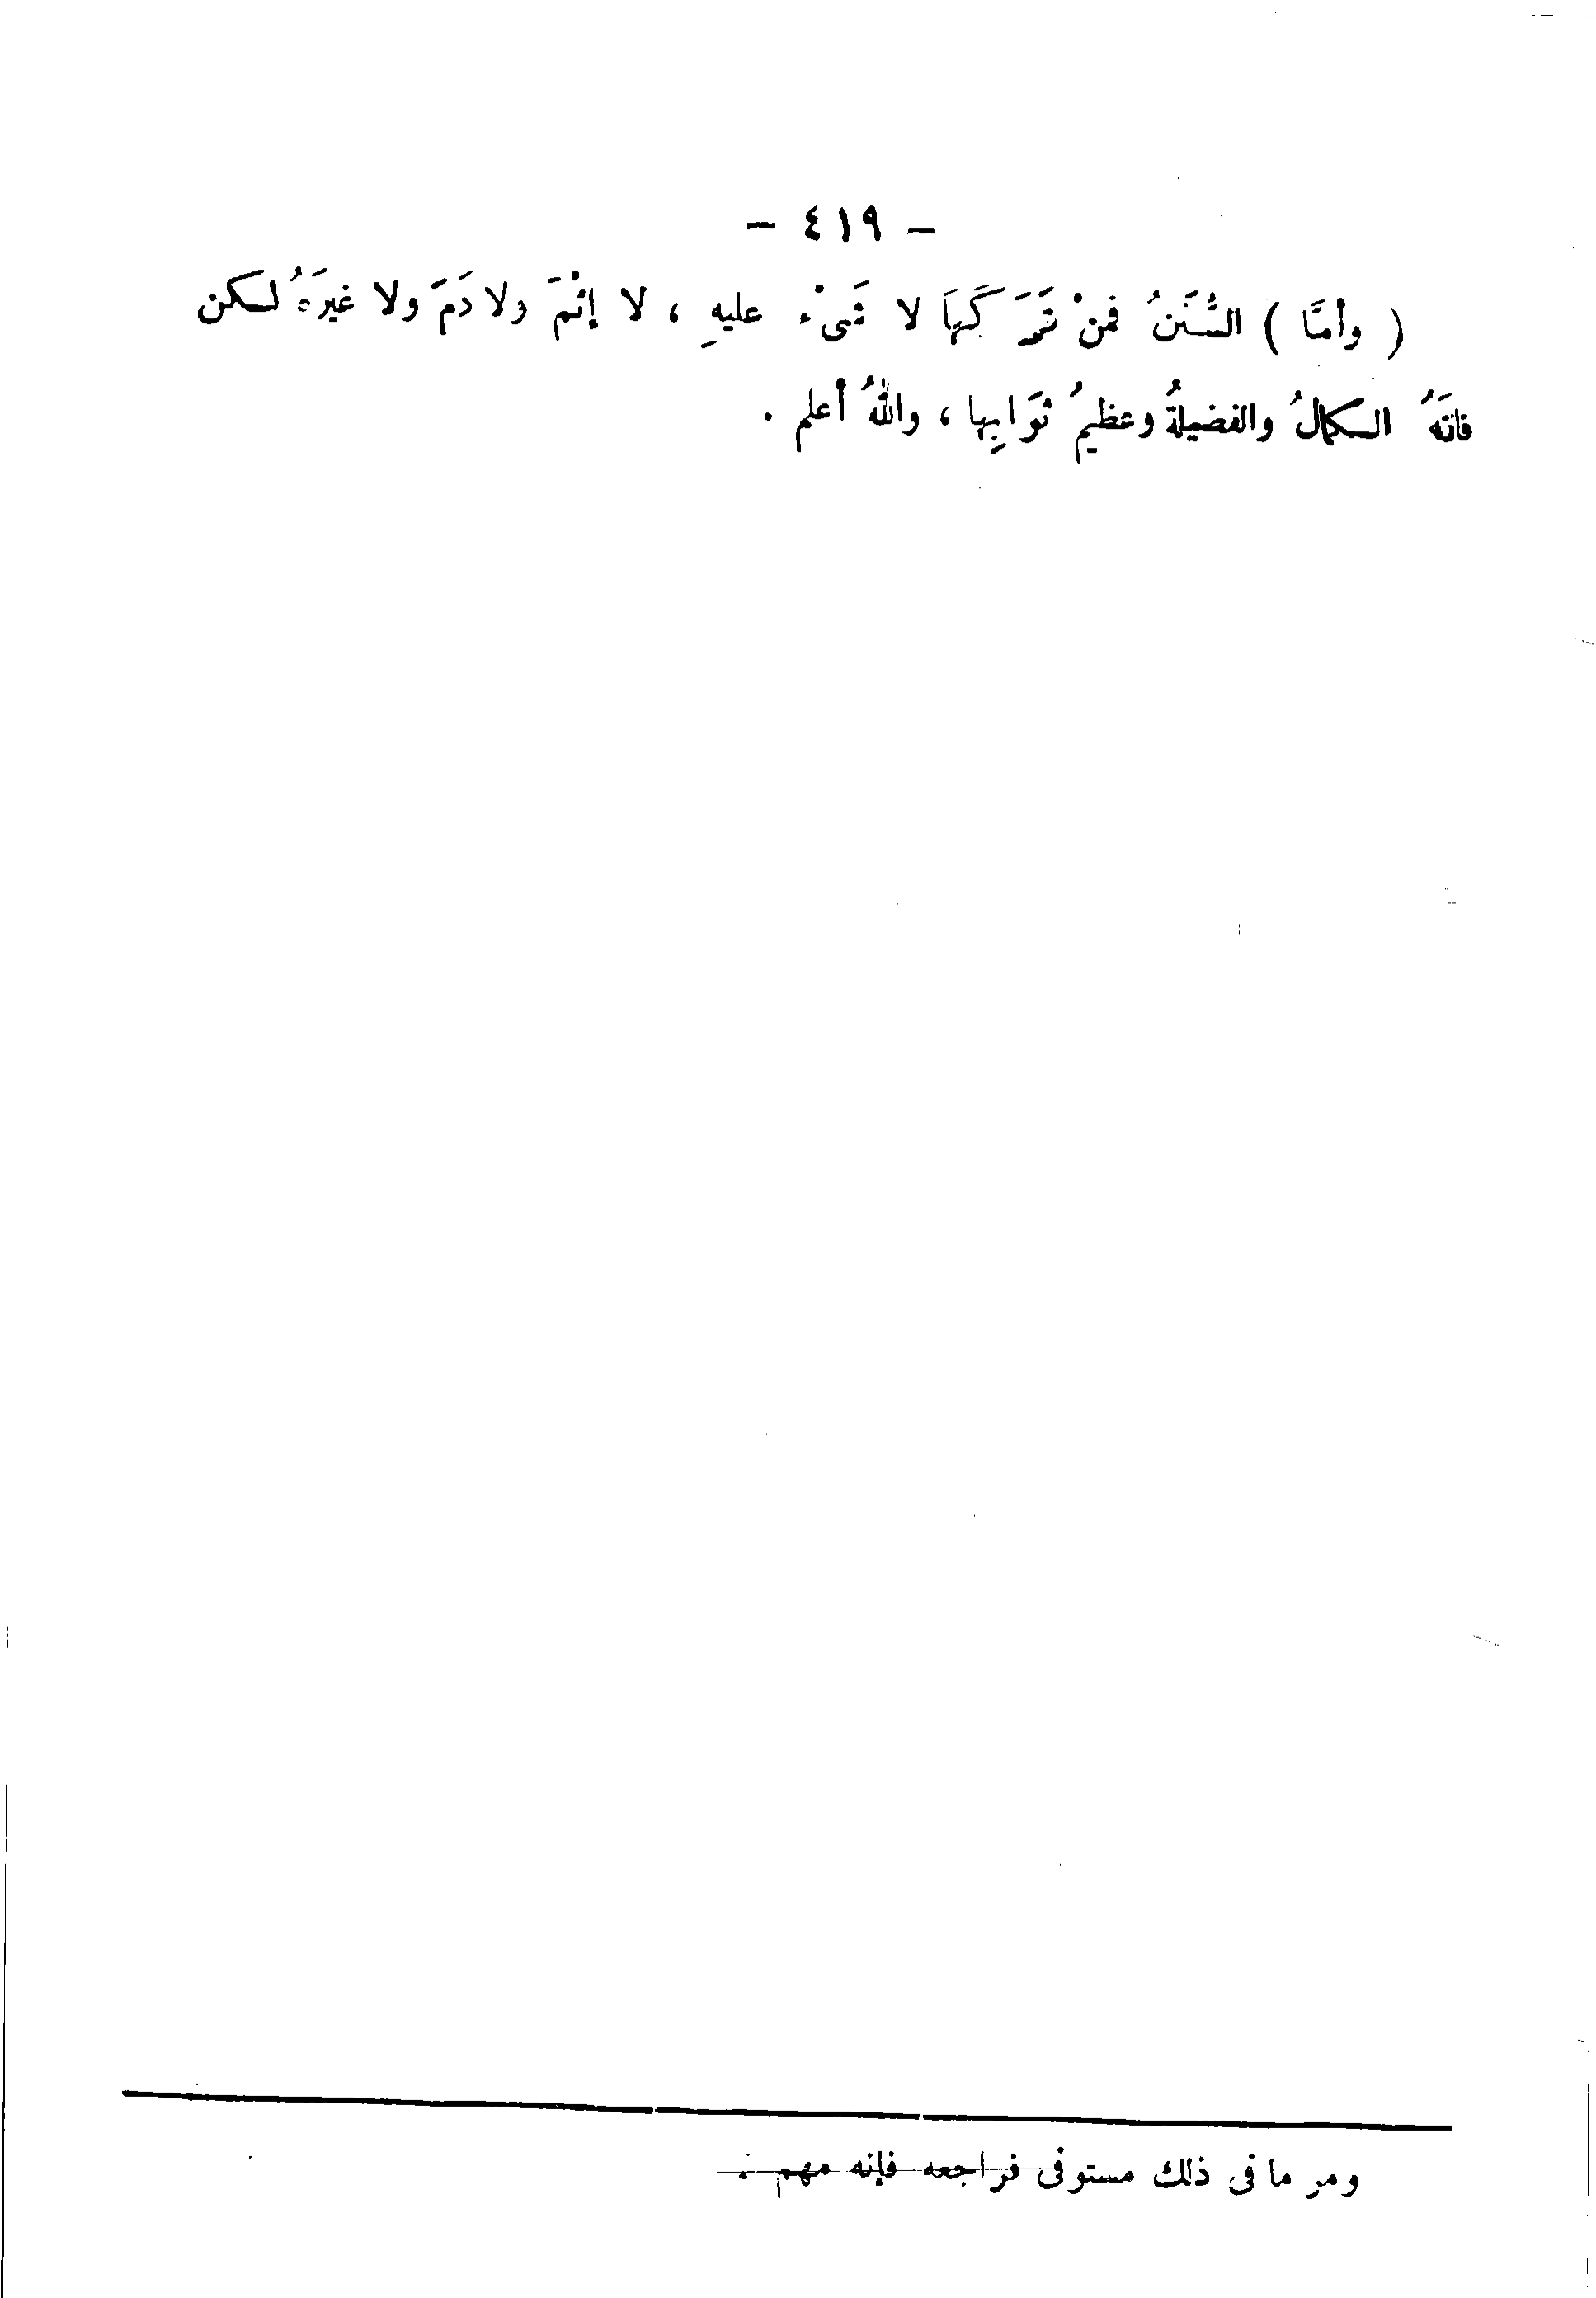 — ٤١٩ —
( وأمَّا ) السُّنَنُ فمنْ تَرَكَهَا لا شَىْء عليهِ ، لا إثْمَ ولا دَمَ ولا غيرَهُ لكن
فاتَهُ الكمالُ والفضيلةُ وعظيمُ ثوَابِها ، واللهُ أعلم .
ومر ما فى ذلك مستوفى فراجعه فإنه مهم .